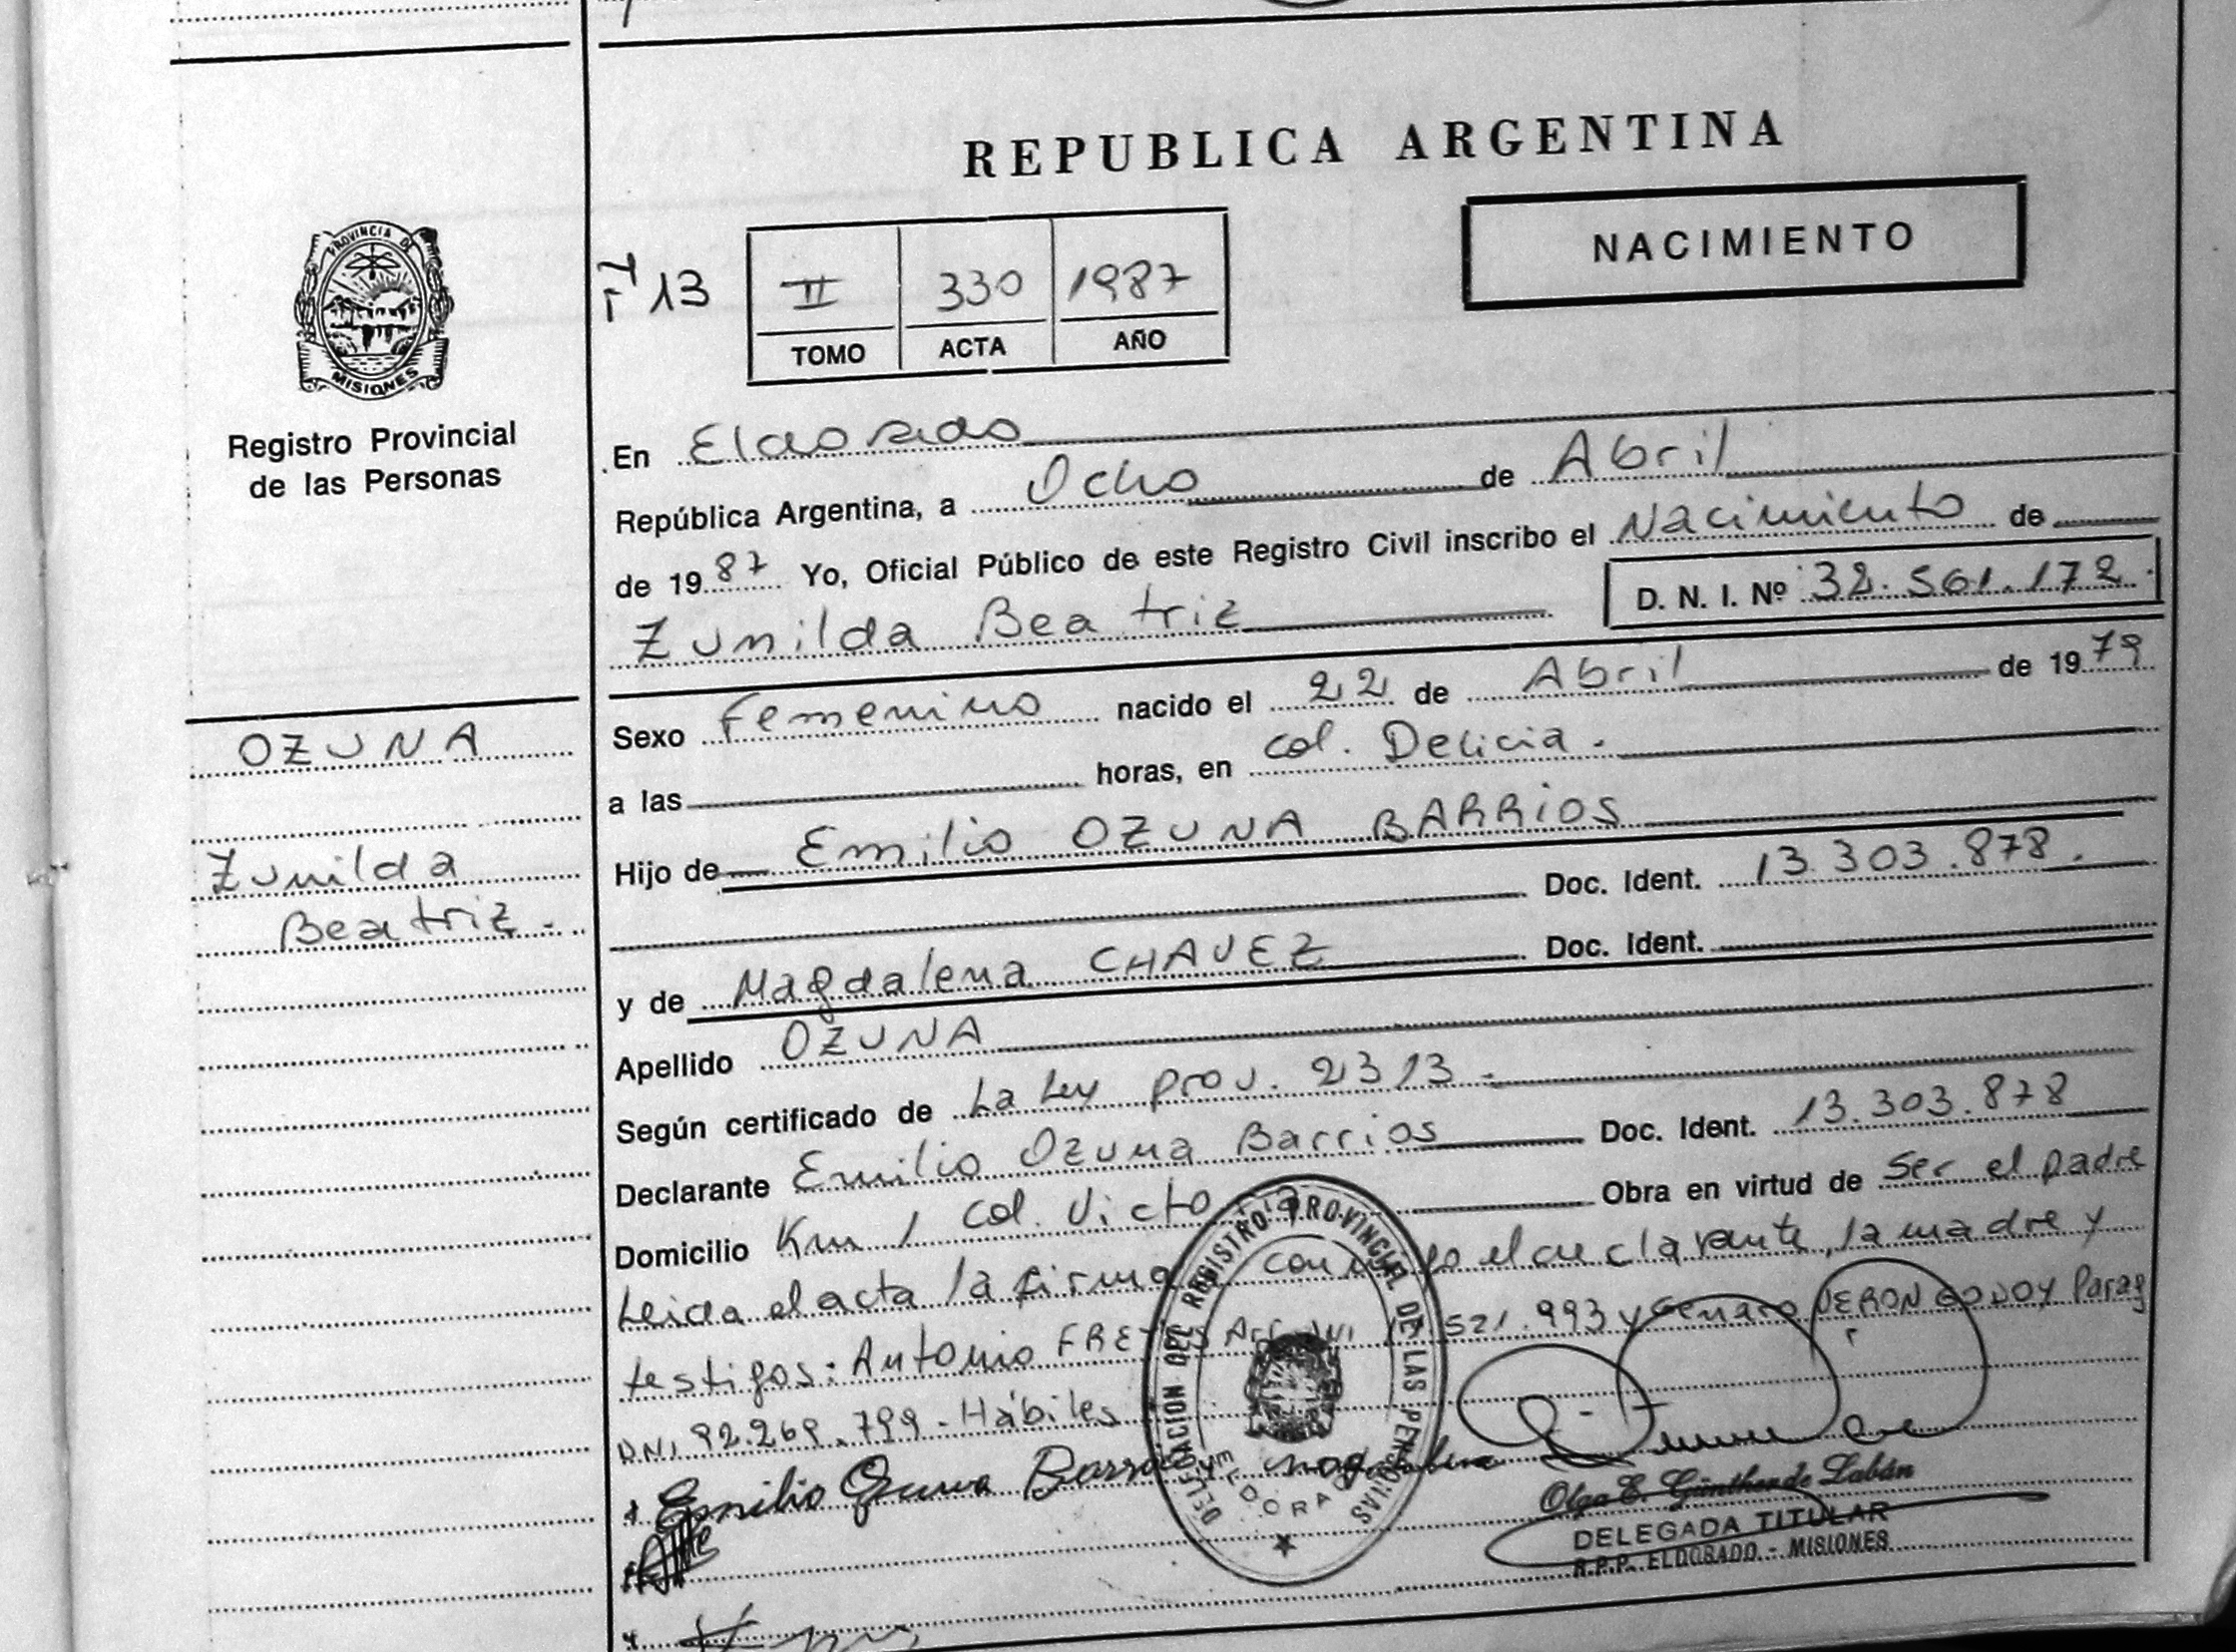 REPUBLICA ARGENTINA
NACIMIENTO
PROVINCIA DE
MISIONES
Registro Provincial
de las Personas
13
II 330 1987
TOMO ACTA AÑO
En Eldorado
República Argentina, a Ocho de Abril
de 1987 Yo, Oficial Público de este Registro Civil inscribo el Nacimiento de
Zunilda Beatriz D. N. I. Nº 32.561.172.
OZUNA
Zunilda
Beatriz.-
Sexo Femenino nacido el 22 de Abril de 1979
a las horas, en col. Delicia.
Hijo de Emilio OZUNA BARRIOS
Doc. Ident. 13.303.878.
y de Magdalena CHAVEZ Doc. Ident.
Apellido OZUNA
Según certificado de La Ley prov. 2313.-
Declarante Emilio Ozuna Barrios Doc. Ident. 13.303.878
Domicilio Km 1 col. Victo Obra en virtud de Ser el padre
Leida el acta la firma el declarante, la madre y
testigos: Antonio 521.993 y Genaro VERON GODOY Parag
DNI 92.269.799 - Hábiles
Emilio Ozuna Barrios magdalena
DELEGACION DEL REGISTRO PROVINCIAL DE LAS PERSONAS
ELDORADO
Olga E. Günther de Labán
DELEGADA TITULAR
R.P.P. ELDORADO - MISIONES